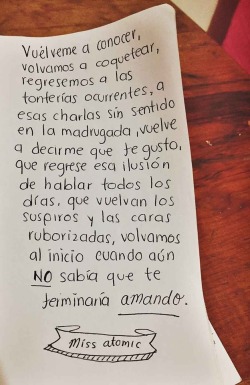 Vuélveme a conocer,
volvamos a coquetear,
regresemos a las
tonterías ocurrentes, a
esas charlas sin sentido
en la madrugada, vuelve
a decirme que te gusto,
que regrese esa ilusión
de hablar todos los
días, que vuelvan los
suspiros y las caras
ruborizadas, volvamos
al inicio cuando aún
NO sabía que te
terminaría amando.
Miss atomic